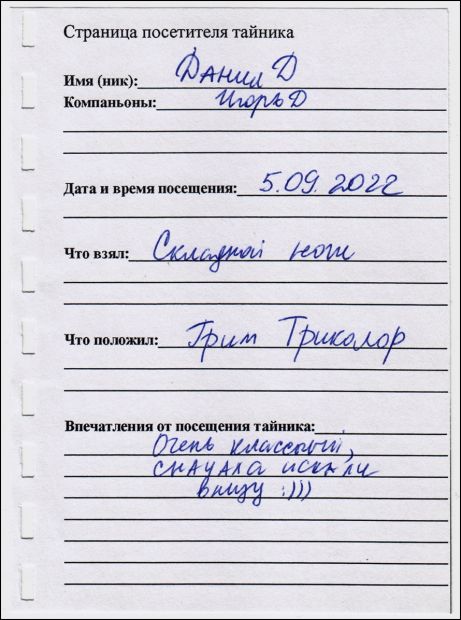 Страница посетителя тайника
Имя (ник): Данил Д
Компаньоны: Игорь Д
Дата и время посещения: 5.09.2022
Что взял: Складной нож
Что положил: Грим Триколор
Впечатления от посещения тайника:
Очень классный,
сначала искали
внизу :)))